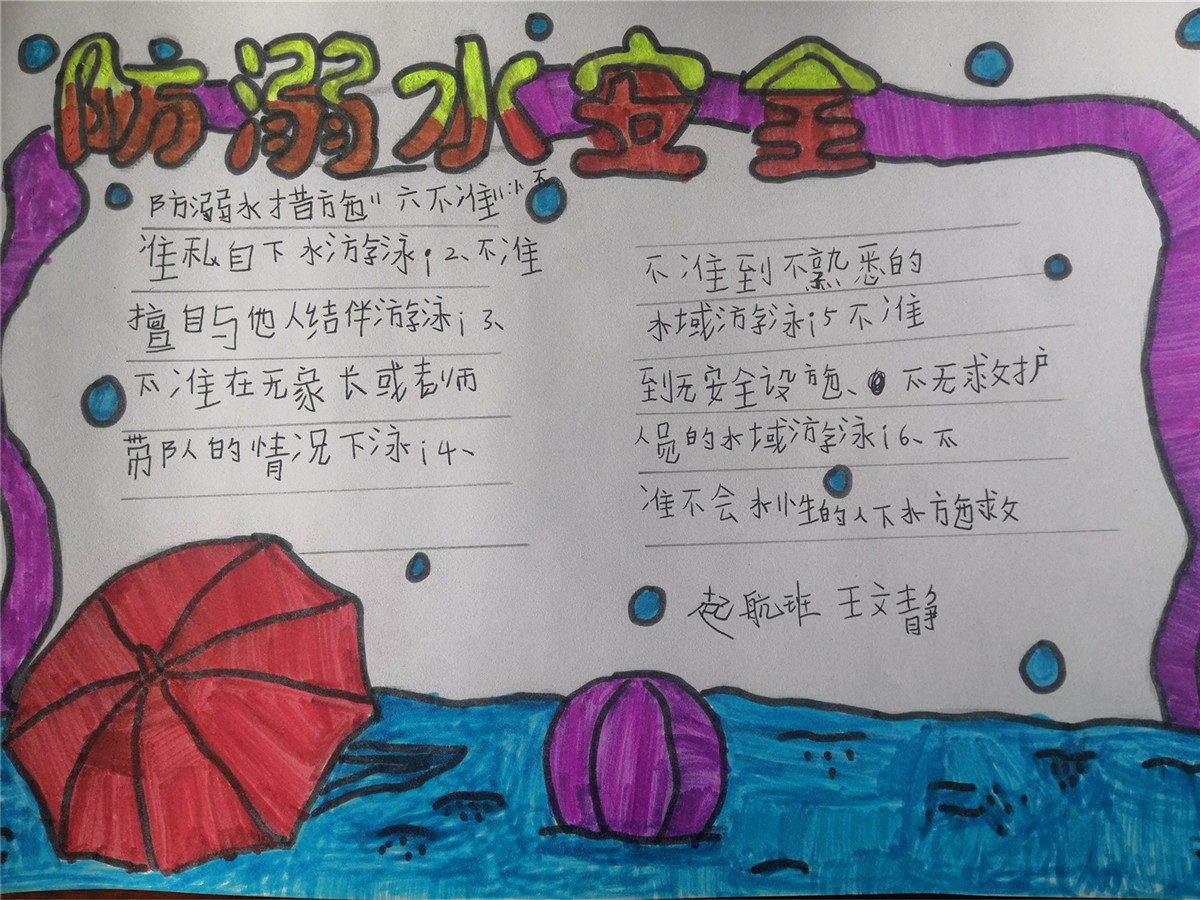 防溺水安全
防溺水措施"六不准":1、不
准私自下水游泳;2、不准
擅自与他人结伴游泳;3、
不准在无家长或老师
带队的情况下泳;4、
不准到不熟悉的
水域游泳;5不准
到无安全设施、不无求救护
人员的水域游泳;6、不
准不会水性的人下水施救
起航班 王文静